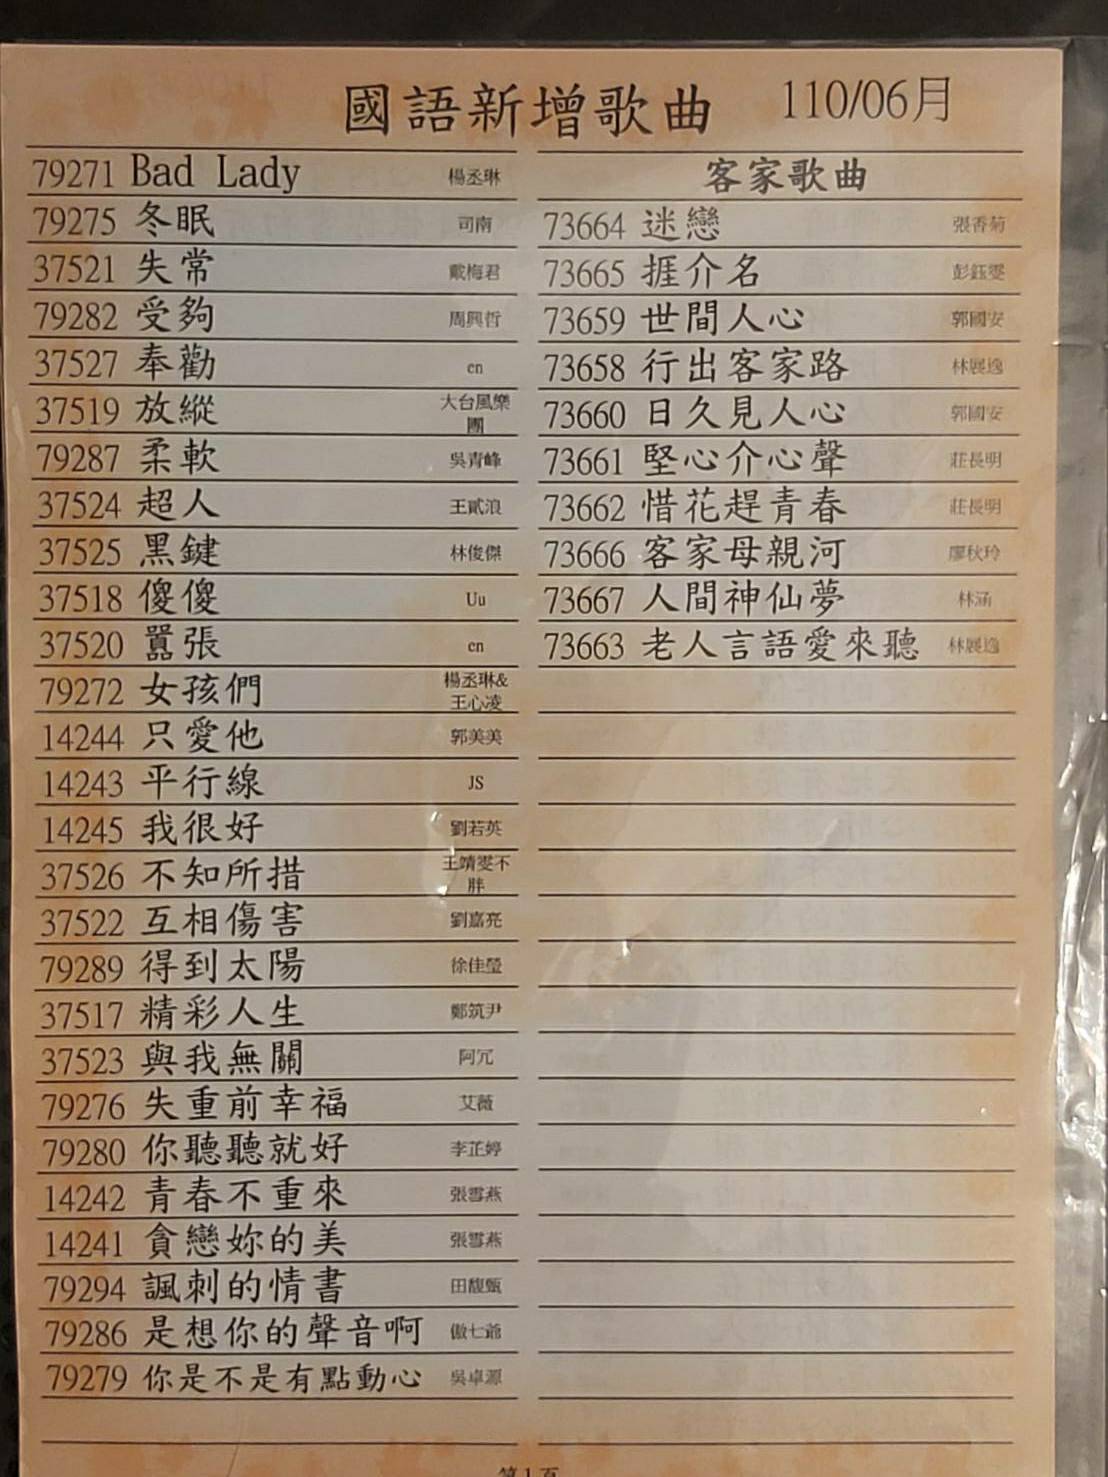 國語新增歌曲 110/06月
79271 Bad Lady 楊丞琳
79275 冬眠 司南
37521 失常 戴梅君
79282 受夠 周興哲
37527 奉勸 cn
37519 放縱 大台風樂團
79287 柔軟 吳青峰
37524 超人 王貳浪
37525 黑鍵 林俊傑
37518 傻傻 Uu
37520 囂張 cn
79272 女孩們 楊丞琳&王心凌
14244 只愛他 郭美美
14243 平行線 JS
14245 我很好 劉若英
37526 不知所措 王靖雯不胖
37522 互相傷害 劉嘉亮
79289 得到太陽 徐佳瑩
37517 精彩人生 鄭筑尹
37523 與我無關 阿冗
79276 失重前幸福 艾薇
79280 你聽聽就好 李芷婷
14242 青春不重來 張雪燕
14241 貪戀妳的美 張雪燕
79294 諷刺的情書 田馥甄
79286 是想你的聲音啊 傲七爺
79279 你是不是有點動心 吳卓源
客家歌曲
73664 迷戀 張香菊
73665 捱介名 彭鈺雯
73659 世間人心 郭國安
73658 行出客家路 林展逸
73660 日久見人心 郭國安
73661 堅心介心聲 莊長明
73662 惜花趕青春 莊長明
73666 客家母親河 廖秋玲
73667 人間神仙夢 林涵
73663 老人言語愛來聽 林展逸
第1頁